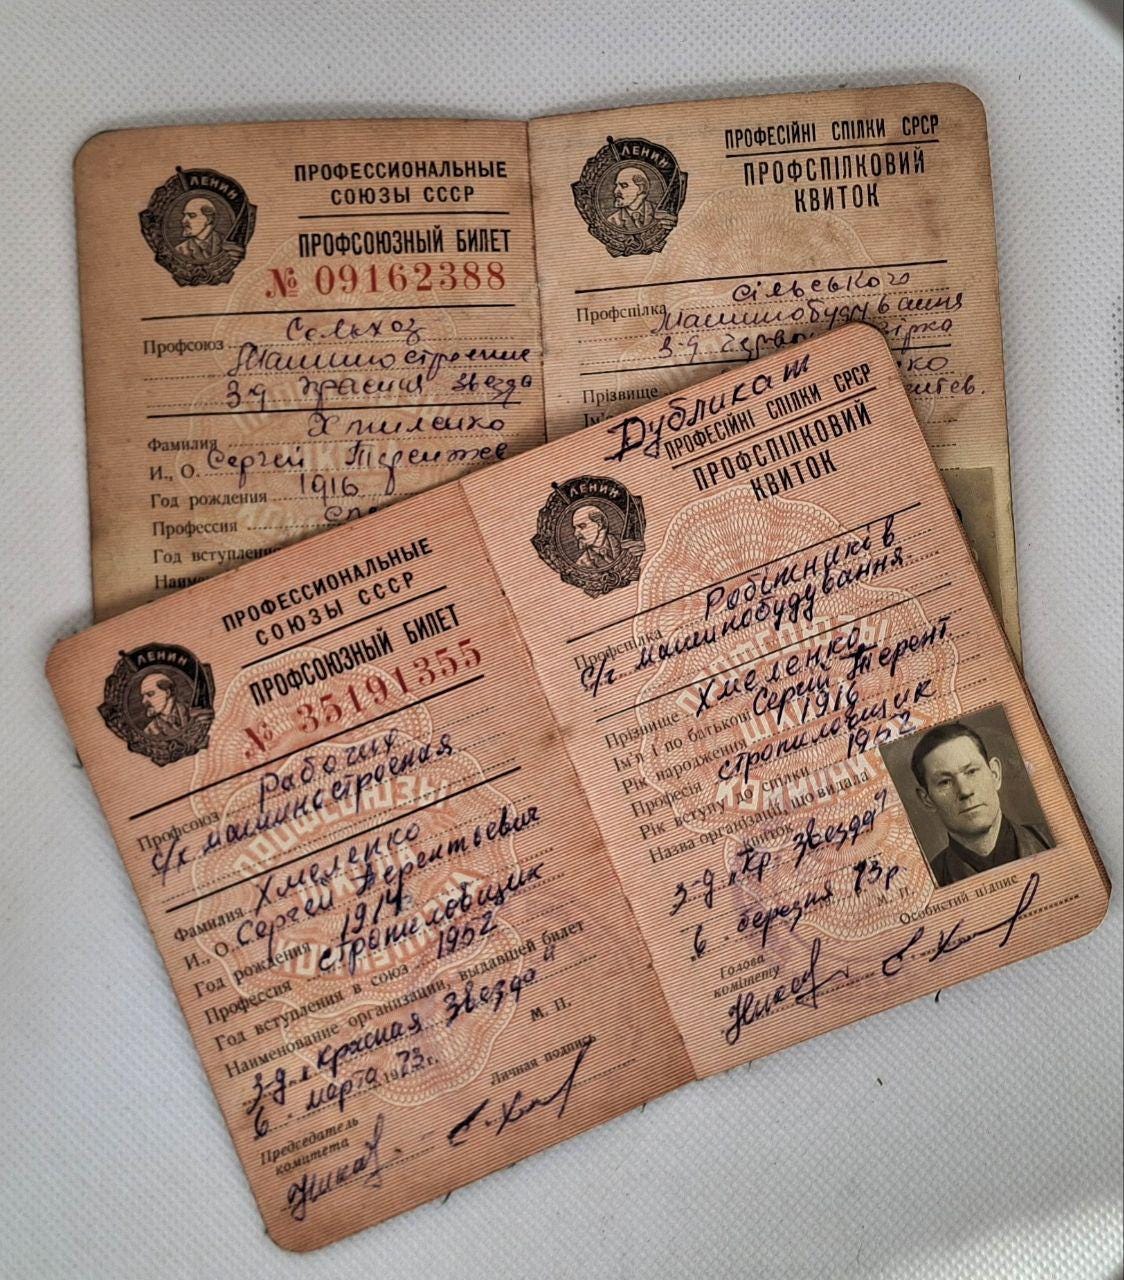 ЛЕНИН
ПРОФЕССИОНАЛЬНЫЕ
СОЮЗЫ СССР
ПРОФСОЮЗНЫЙ БИЛЕТ
№ 09162388
Профсоюз Сельхоз
Машиностроение
З-д Красная звезда
Фамилия Хмиленко
И., О. Сергей Терентьев
Год рождения 1916
Профессия
Год вступления
ЛЕНИН
ПРОФЕСІЙНІ СПІЛКИ СРСР
ПРОФСПІЛКОВИЙ
КВИТОК
Профспілка Сільського
Машинобудування
З-д Червон зірка
Прізвище
ЛЕНИН
ПРОФЕССИОНАЛЬНЫЕ
СОЮЗЫ СССР
ПРОФСОЮЗНЫЙ БИЛЕТ
№ 35191355
Профсоюз Рабочих
с/х машиностроения
Фамилия Хмеленко
И., О. Сергей Терентьевич
Год рождения 1914
Профессия стропиловщик
Год вступления в союз 1952
Наименование организации, выдавшей билет
З-д "Красная Звезда"
6 марта 1973 г.
М. П.
Председатель
комитета
Личная подпись
Дубликат
ЛЕНИН
ПРОФЕСІЙНІ СПІЛКИ СРСР
ПРОФСПІЛКОВИЙ
КВИТОК
Профспілка Робітників
с/г машинобудування
Прізвище Хмеленко
Ім'я і по батькові Сергій Терент
Рік народження 1916
Професія стропиловщик
Рік вступу до спілки 1952
Назва організації, що видала
квиток
З-д "Кр. Звезда"
6 березня 73 р.
М. П.
Голова
комітету
Особистий підпис